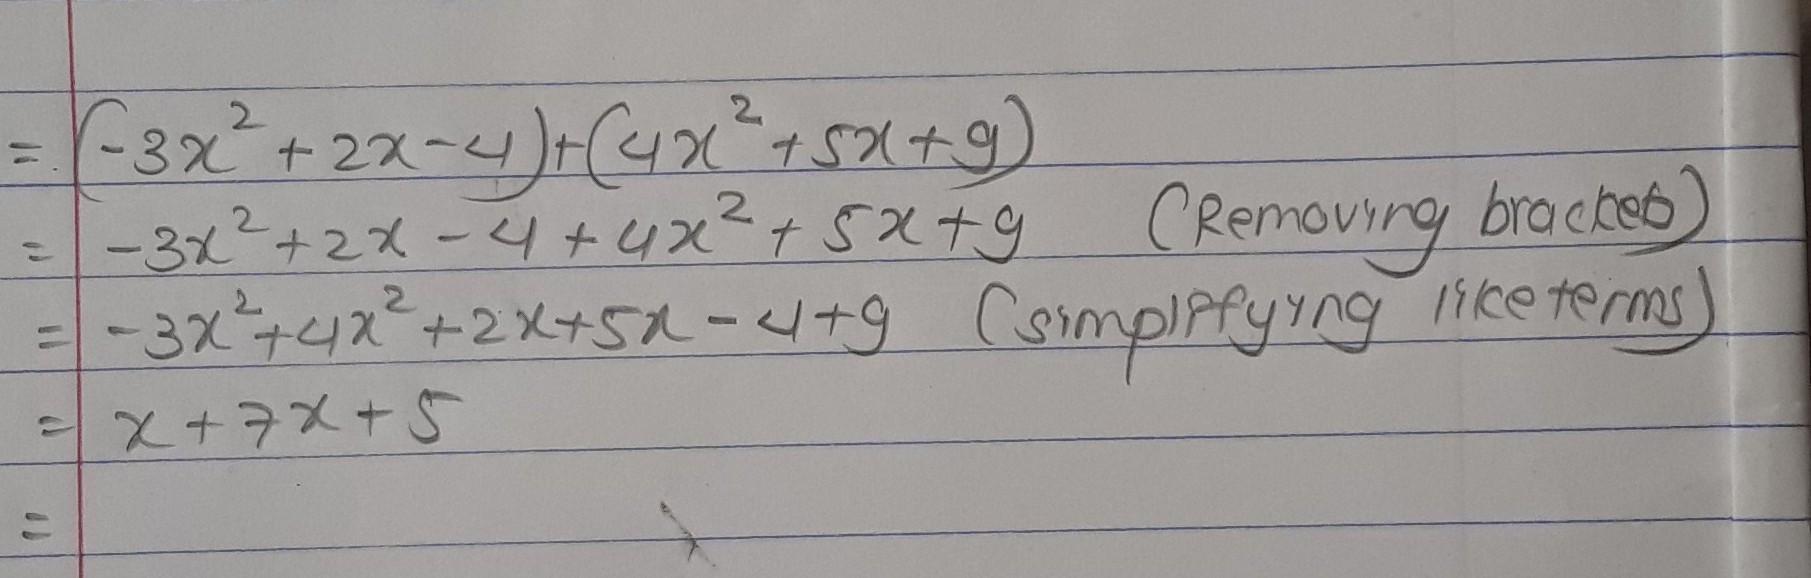 = (-3x² + 2x - 4) + (4x² + 5x + 9)
= -3x² + 2x - 4 + 4x² + 5x + 9 (Removing brackets)
= -3x² + 4x² + 2x + 5x - 4 + 9 (simplifying like terms)
= x + 7x + 5
=